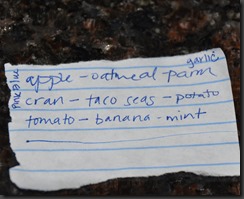 garlic
pink blue
apple - oatmeal parm
cran - taco seas - potato
tomato - banana - mint